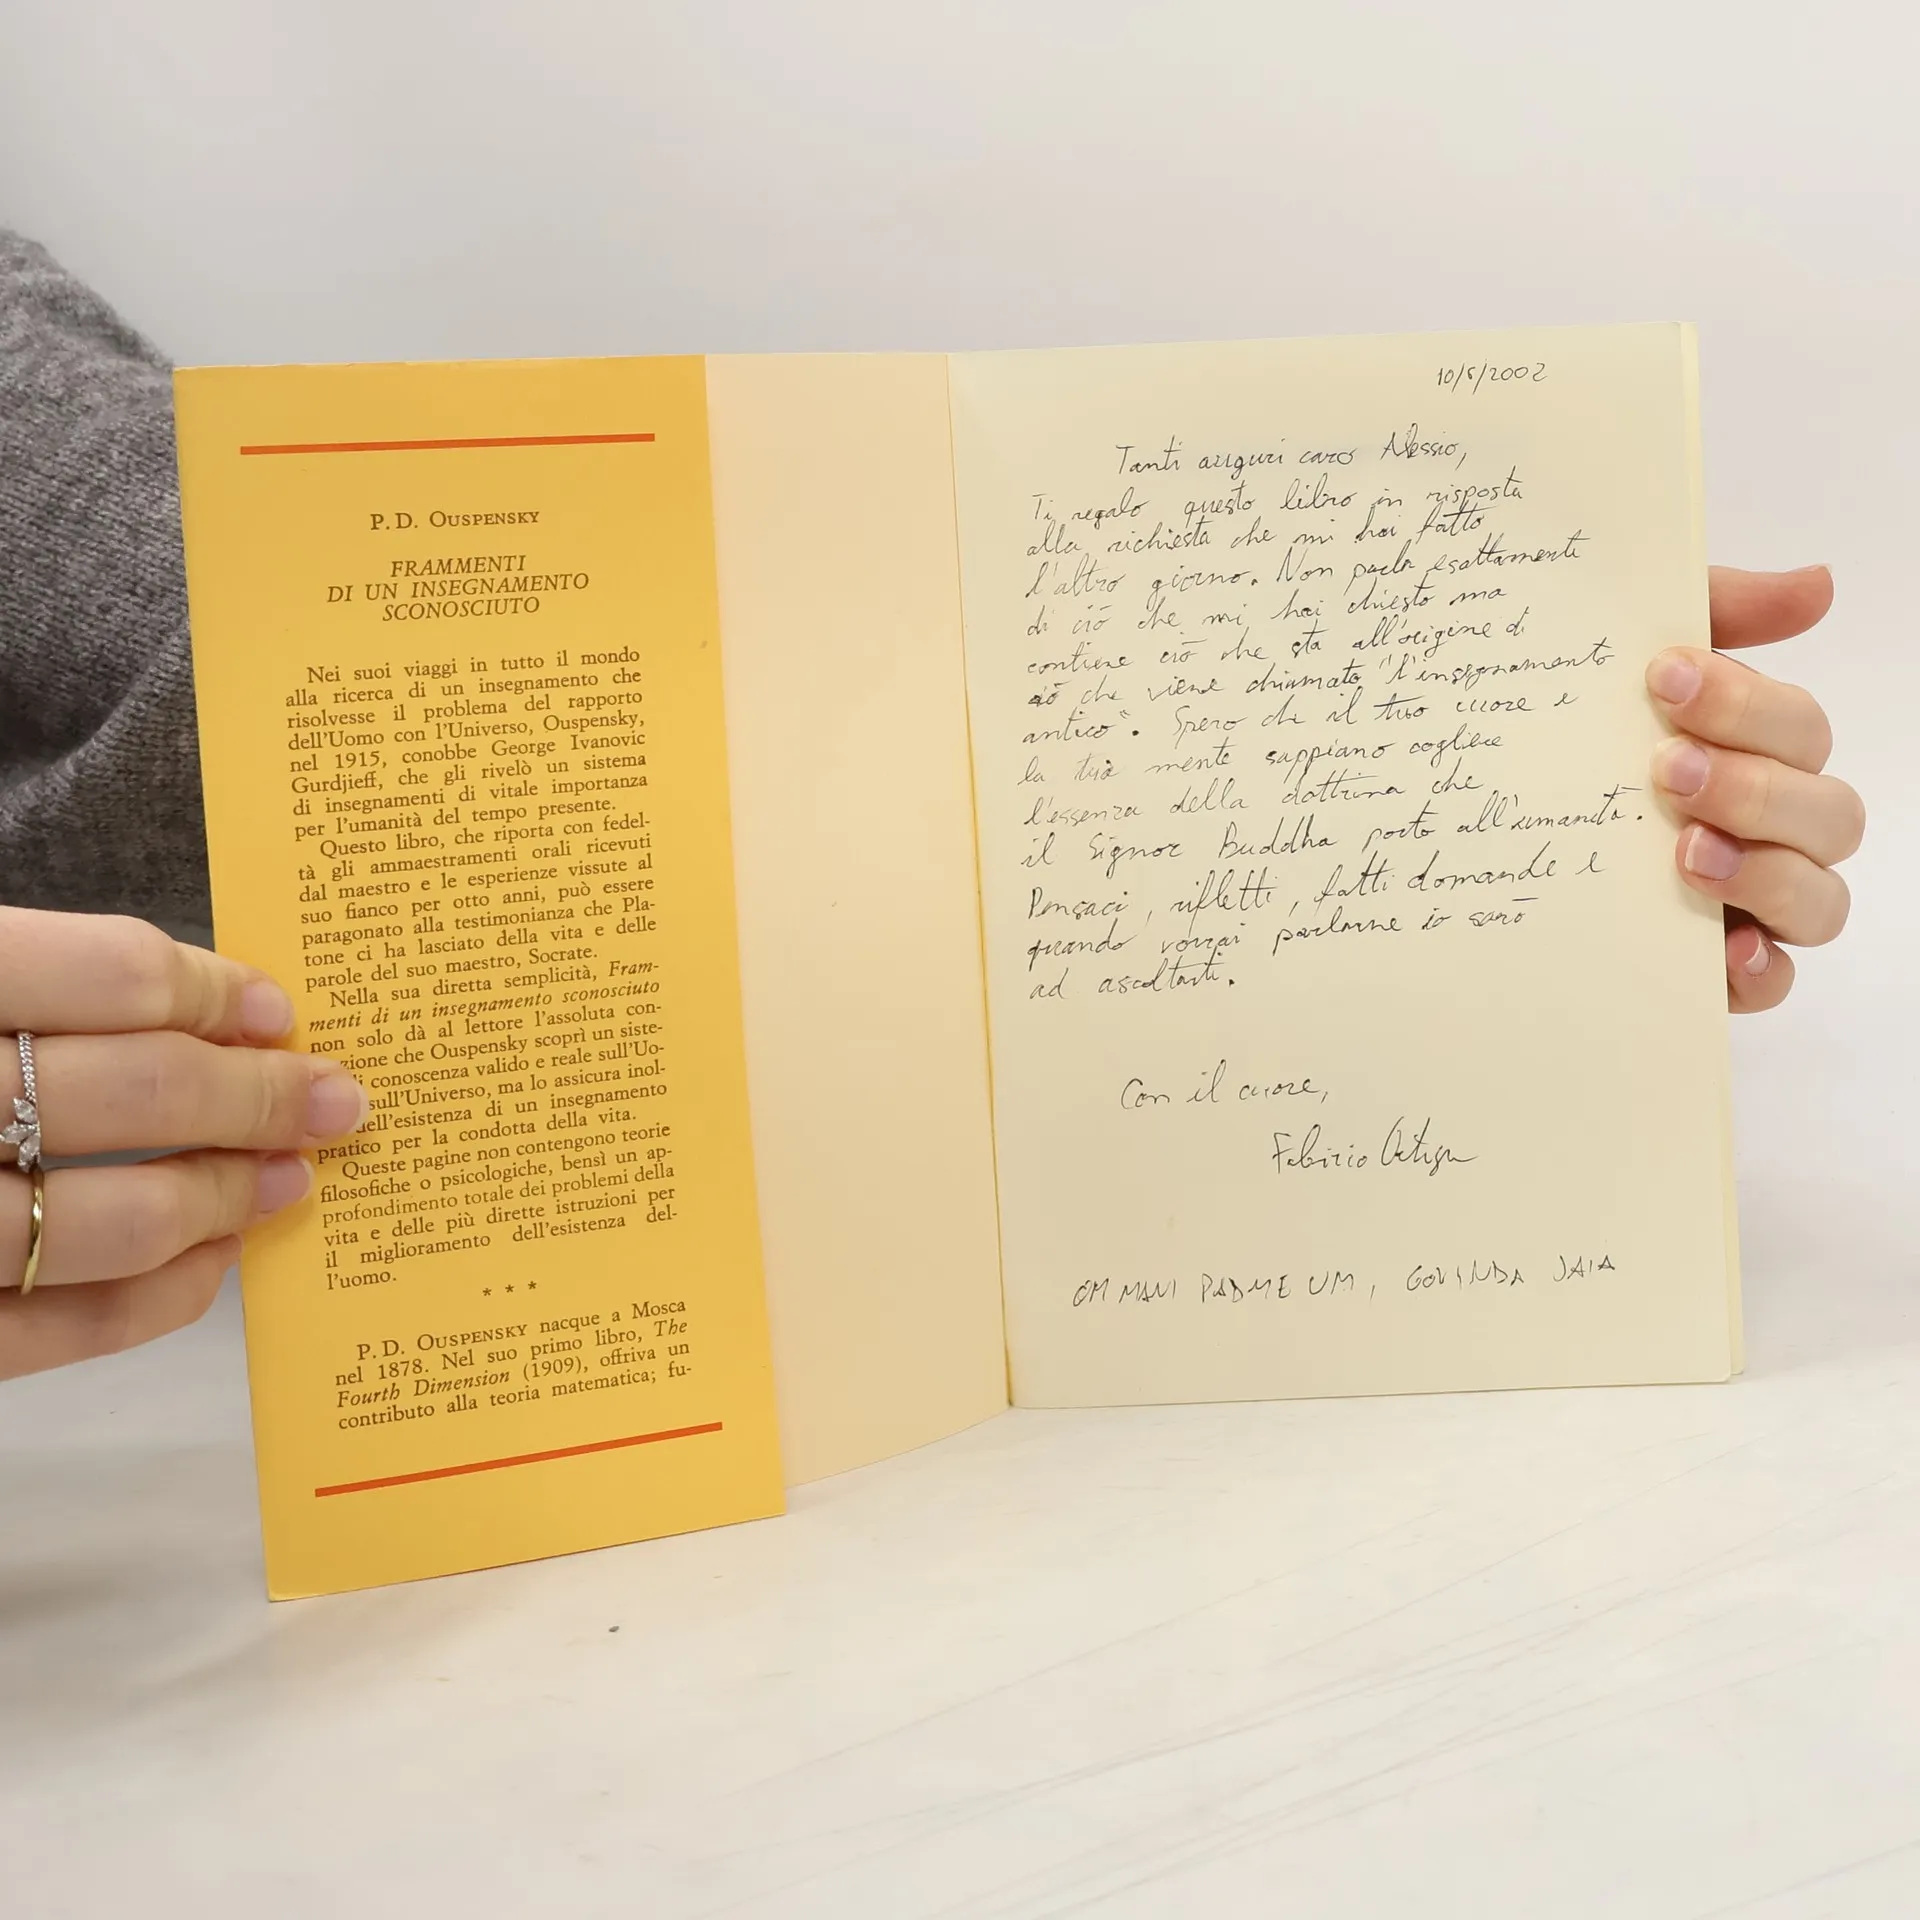 P. D. OUSPENSKY
FRAMMENTI
DI UN INSEGNAMENTO
SCONOSCIUTO
Nei suoi viaggi in tutto il mondo
alla ricerca di un insegnamento che
risolvesse il problema del rapporto
dell'Uomo con l'Universo, Ouspensky,
nel 1915, conobbe George Ivanovic
Gurdjieff, che gli rivelò un sistema
di insegnamenti di vitale importanza
per l'umanità del tempo presente.
Questo libro, che riporta con fedel-
tà gli ammaestramenti orali ricevuti
dal maestro e le esperienze vissute al
suo fianco per otto anni, può essere
paragonato alla testimonianza che Pla-
tone ci ha lasciato della vita e delle
parole del suo maestro, Socrate.
Nella sua diretta semplicità, Fram-
menti di un insegnamento sconosciuto
non solo dà al lettore l'assoluta con-
zione che Ouspensky scoprì un siste-
i conoscenza valido e reale sull'Uo-
sull'Universo, ma lo assicura inol-
dell'esistenza di un insegnamento
pratico per la condotta della vita.
Queste pagine non contengono teorie
filosofiche o psicologiche, bensì un ap-
profondimento totale dei problemi della
vita e delle più dirette istruzioni per
il miglioramento dell'esistenza del-
l'uomo.
* * *
P. D. OUSPENSKY nacque a Mosca
nel 1878. Nel suo primo libro, The
Fourth Dimension (1909), offriva un
contributo alla teoria matematica; fu-
Tanti auguri caro Alessio,
Ti regalo questo libro in risposta
alla richiesta che mi hai fatto
l'altro giorno. Non parla esattamente
di ciò che mi hai chiesto ma
contiene ciò che sta all'origine di
ciò che viene chiamato "l'insegnamento
antico". Spero che il tuo cuore e
la tua mente sappiano cogliere
l'essenza della dottrina che
il Signor Buddha portò all'umanità.
Pensaci, rifletti, fatti domande e
quando vorrai parlarne io sarò
ad ascoltarti.
Con il cuore,
Fabrizio
OM MANI PADME UM, GOVINDA JAIA